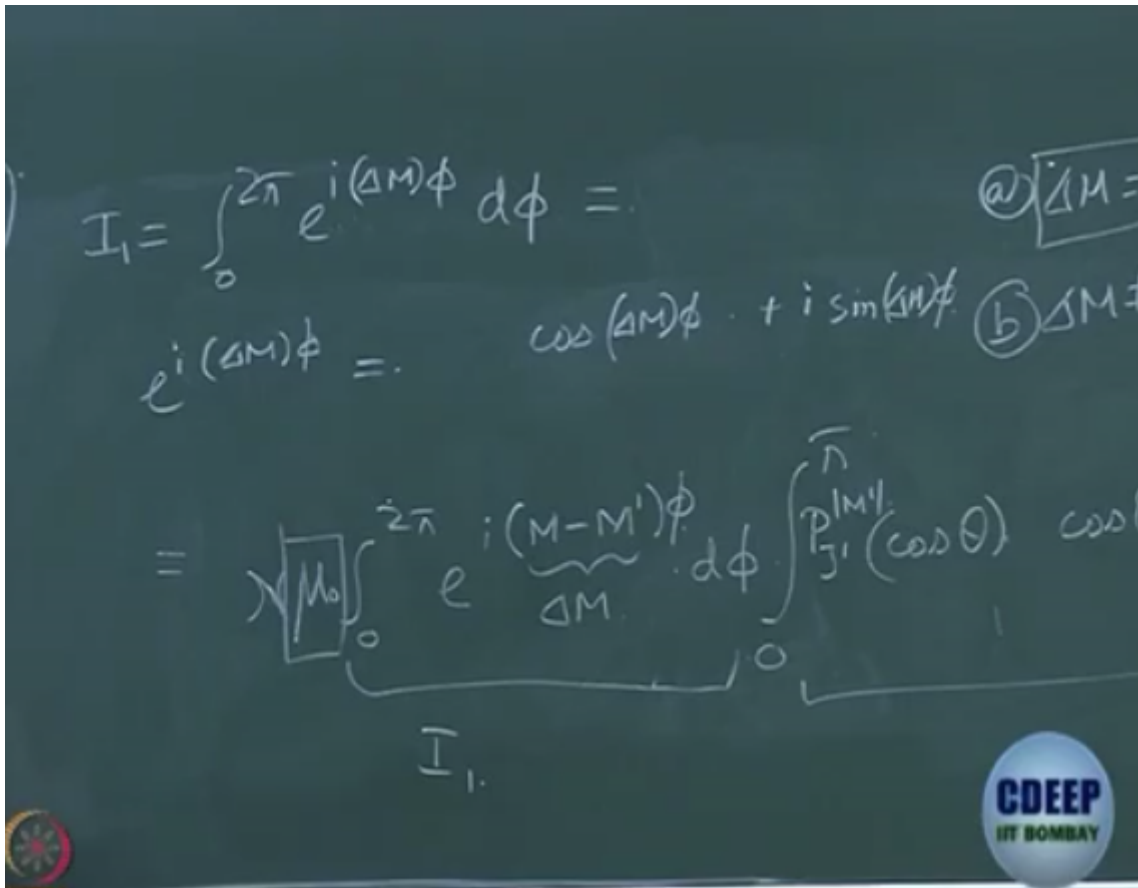 I₁ = ∫₀^2π e^i(ΔM)φ dφ =
ⓐ ΔM =
e^i(ΔM)φ =. cos(ΔM)φ + i sin(ΔM)φ
ⓑ ΔM =
= N μ₀ ∫₀^2π e^i(M-M')φ dφ ∫₀^π P_J'^|M'| (cosθ) cos
ΔM
I₁.
CDEEP
IIT BOMBAY